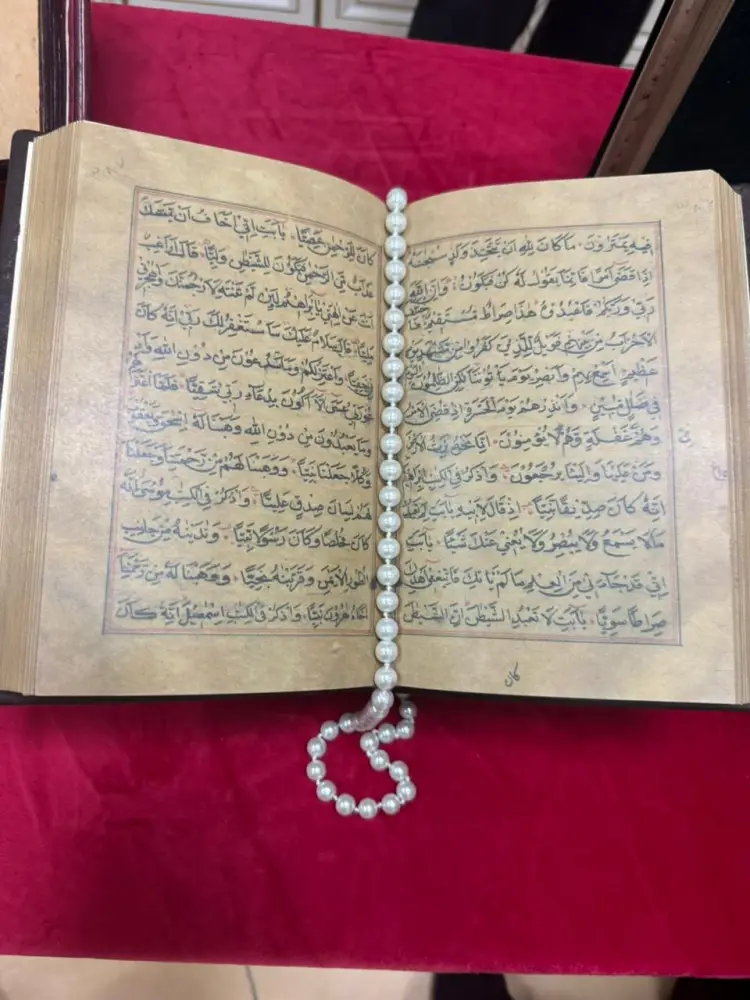 فِيهِ يَمْتَرُونَ مَا كَانَ لِلّٰهِ اَنْ يَتَّخِذَ وَلَدٍ سُبْحَانَهُ
اِذَا قَضٰى اَمْرًا فَاِنَّمَا يَقُولُ لَهُ كُنْ فَيَكُونُ وَاِنَّ اللّٰهَ
رَبِّي وَرَبُّكُمْ فَاعْبُدُوهُ هٰذَا صِرَاطٌ مُسْتَقِيمٌ
الْاَحْزَابُ مِنْ بَيْنِهِمْ فَوَيْلٌ لِلَّذِينَ كَفَرُوا مِنْ مَشْهَدِ يَوْمٍ
عَظِيمٍ اَسْمِعْ بِهِمْ وَاَبْصِرْ يَوْمَ يَأْتُونَنَا لٰكِنِ الظَّالِمُونَ
فِي ضَلٰلٍ مُبِينٍ وَاَنْذِرْهُمْ يَوْمَ الْحَسْرَةِ اِذْ قُضِيَ الْاَمْرُ
وَهُمْ فِي غَفْلَةٍ وَهُمْ لَا يُؤْمِنُونَ اِنَّا نَحْنُ نَرِثُ الْاَرْضَ
وَمَنْ عَلَيْهَا وَاِلَيْنَا يُرْجَعُونَ وَاذْكُرْ فِي الْكِتٰبِ اِبْرٰهِيمَ
اِنَّهُ كَانَ صِدِّيقًا نَبِيًّا اِذْ قَالَ لِاَبِيهِ يَا اَبَتِ لِمَ تَعْبُدُ
مَا لَا يَسْمَعُ وَلَا يُبْصِرُ وَلَا يُغْنِي عَنْكَ شَيْئًا يَا اَبَتِ
اِنِّي قَدْ جَاءَنِي مِنَ الْعِلْمِ مَا لَمْ يَأْتِكَ فَاتَّبِعْنِي اَهْدِكَ
صِرَاطًا سَوِيًّا يَا اَبَتِ لَا تَعْبُدِ الشَّيْطٰنَ اِنَّ الشَّيْطٰنَ
كان
كَانَ لِلرَّحْمٰنِ عَصِيًّا يَا اَبَتِ اِنِّي اَخَافُ اَنْ يَمَسَّكَ
عَذَابٌ مِنَ الرَّحْمٰنِ فَتَكُونَ لِلشَّيْطٰنِ وَلِيًّا قَالَ اَرَاغِبٌ
اَنْتَ عَنْ اٰلِهَتِي يَا اِبْرٰهِيمُ لَئِنْ لَمْ تَنْتَهِ لَاَرْجُمَنَّكَ وَاهْجُرْنِي
مَلِيًّا قَالَ سَلَامٌ عَلَيْكَ سَاَسْتَغْفِرُ لَكَ رَبِّي اِنَّهُ كَانَ
بِي حَفِيًّا وَاَعْتَزِلُكُمْ وَمَا تَدْعُونَ مِنْ دُونِ اللّٰهِ وَاَدْعُوا
رَبِّي عَسٰى اَلَّا اَكُونَ بِدُعَاءِ رَبِّي شَقِيًّا فَلَمَّا اعْتَزَلَهُمْ
وَمَا يَعْبُدُونَ مِنْ دُونِ اللّٰهِ وَهَبْنَا لَهُ اِسْحٰقَ وَيَعْقُوبَ
وَكُلًّا جَعَلْنَا نَبِيًّا وَوَهَبْنَا لَهُمْ مِنْ رَحْمَتِنَا وَجَعَلْنَا
لَهُمْ لِسَانَ صِدْقٍ عَلِيًّا وَاذْكُرْ فِي الْكِتٰبِ مُوسٰى اِنَّهُ
كَانَ مُخْلَصًا وَكَانَ رَسُولًا نَبِيًّا وَنَادَيْنٰهُ مِنْ جَانِبِ
الطُّورِ الْاَيْمَنِ وَقَرَّبْنٰهُ نَجِيًّا وَوَهَبْنَا لَهُ مِنْ رَحْمَتِنَا
اَخَاهُ هٰرُونَ نَبِيًّا وَاذْكُرْ فِي الْكِتٰبِ اِسْمٰعِيلَ اِنَّهُ كَانَ